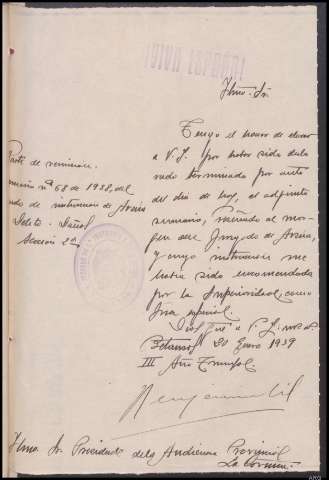 ¡VIVA ESPAÑA!
Iltmo. Sr.
Tengo el honor de elevar
a V.I. por haber sido decla
rado terminado por auto
del día de hoy, el adjunto
sumario, reseñado al mar-
gen del Juzgado de Arzúa,
y cuya instrucción me
había sido encomendada
por la Superioridad, como
Juez especial.
Dios gue a V.I. m. a.
Betanzos 20 Enero 1939
III Año Triunfal.
Parte de remisión.
nº 68 de 1938, del
do de instrucción de Arzúa
Delito - Daños
Sección 2ª
Iltmo. Sr. Presidente de la Audiencia Provincial
La Coruña.